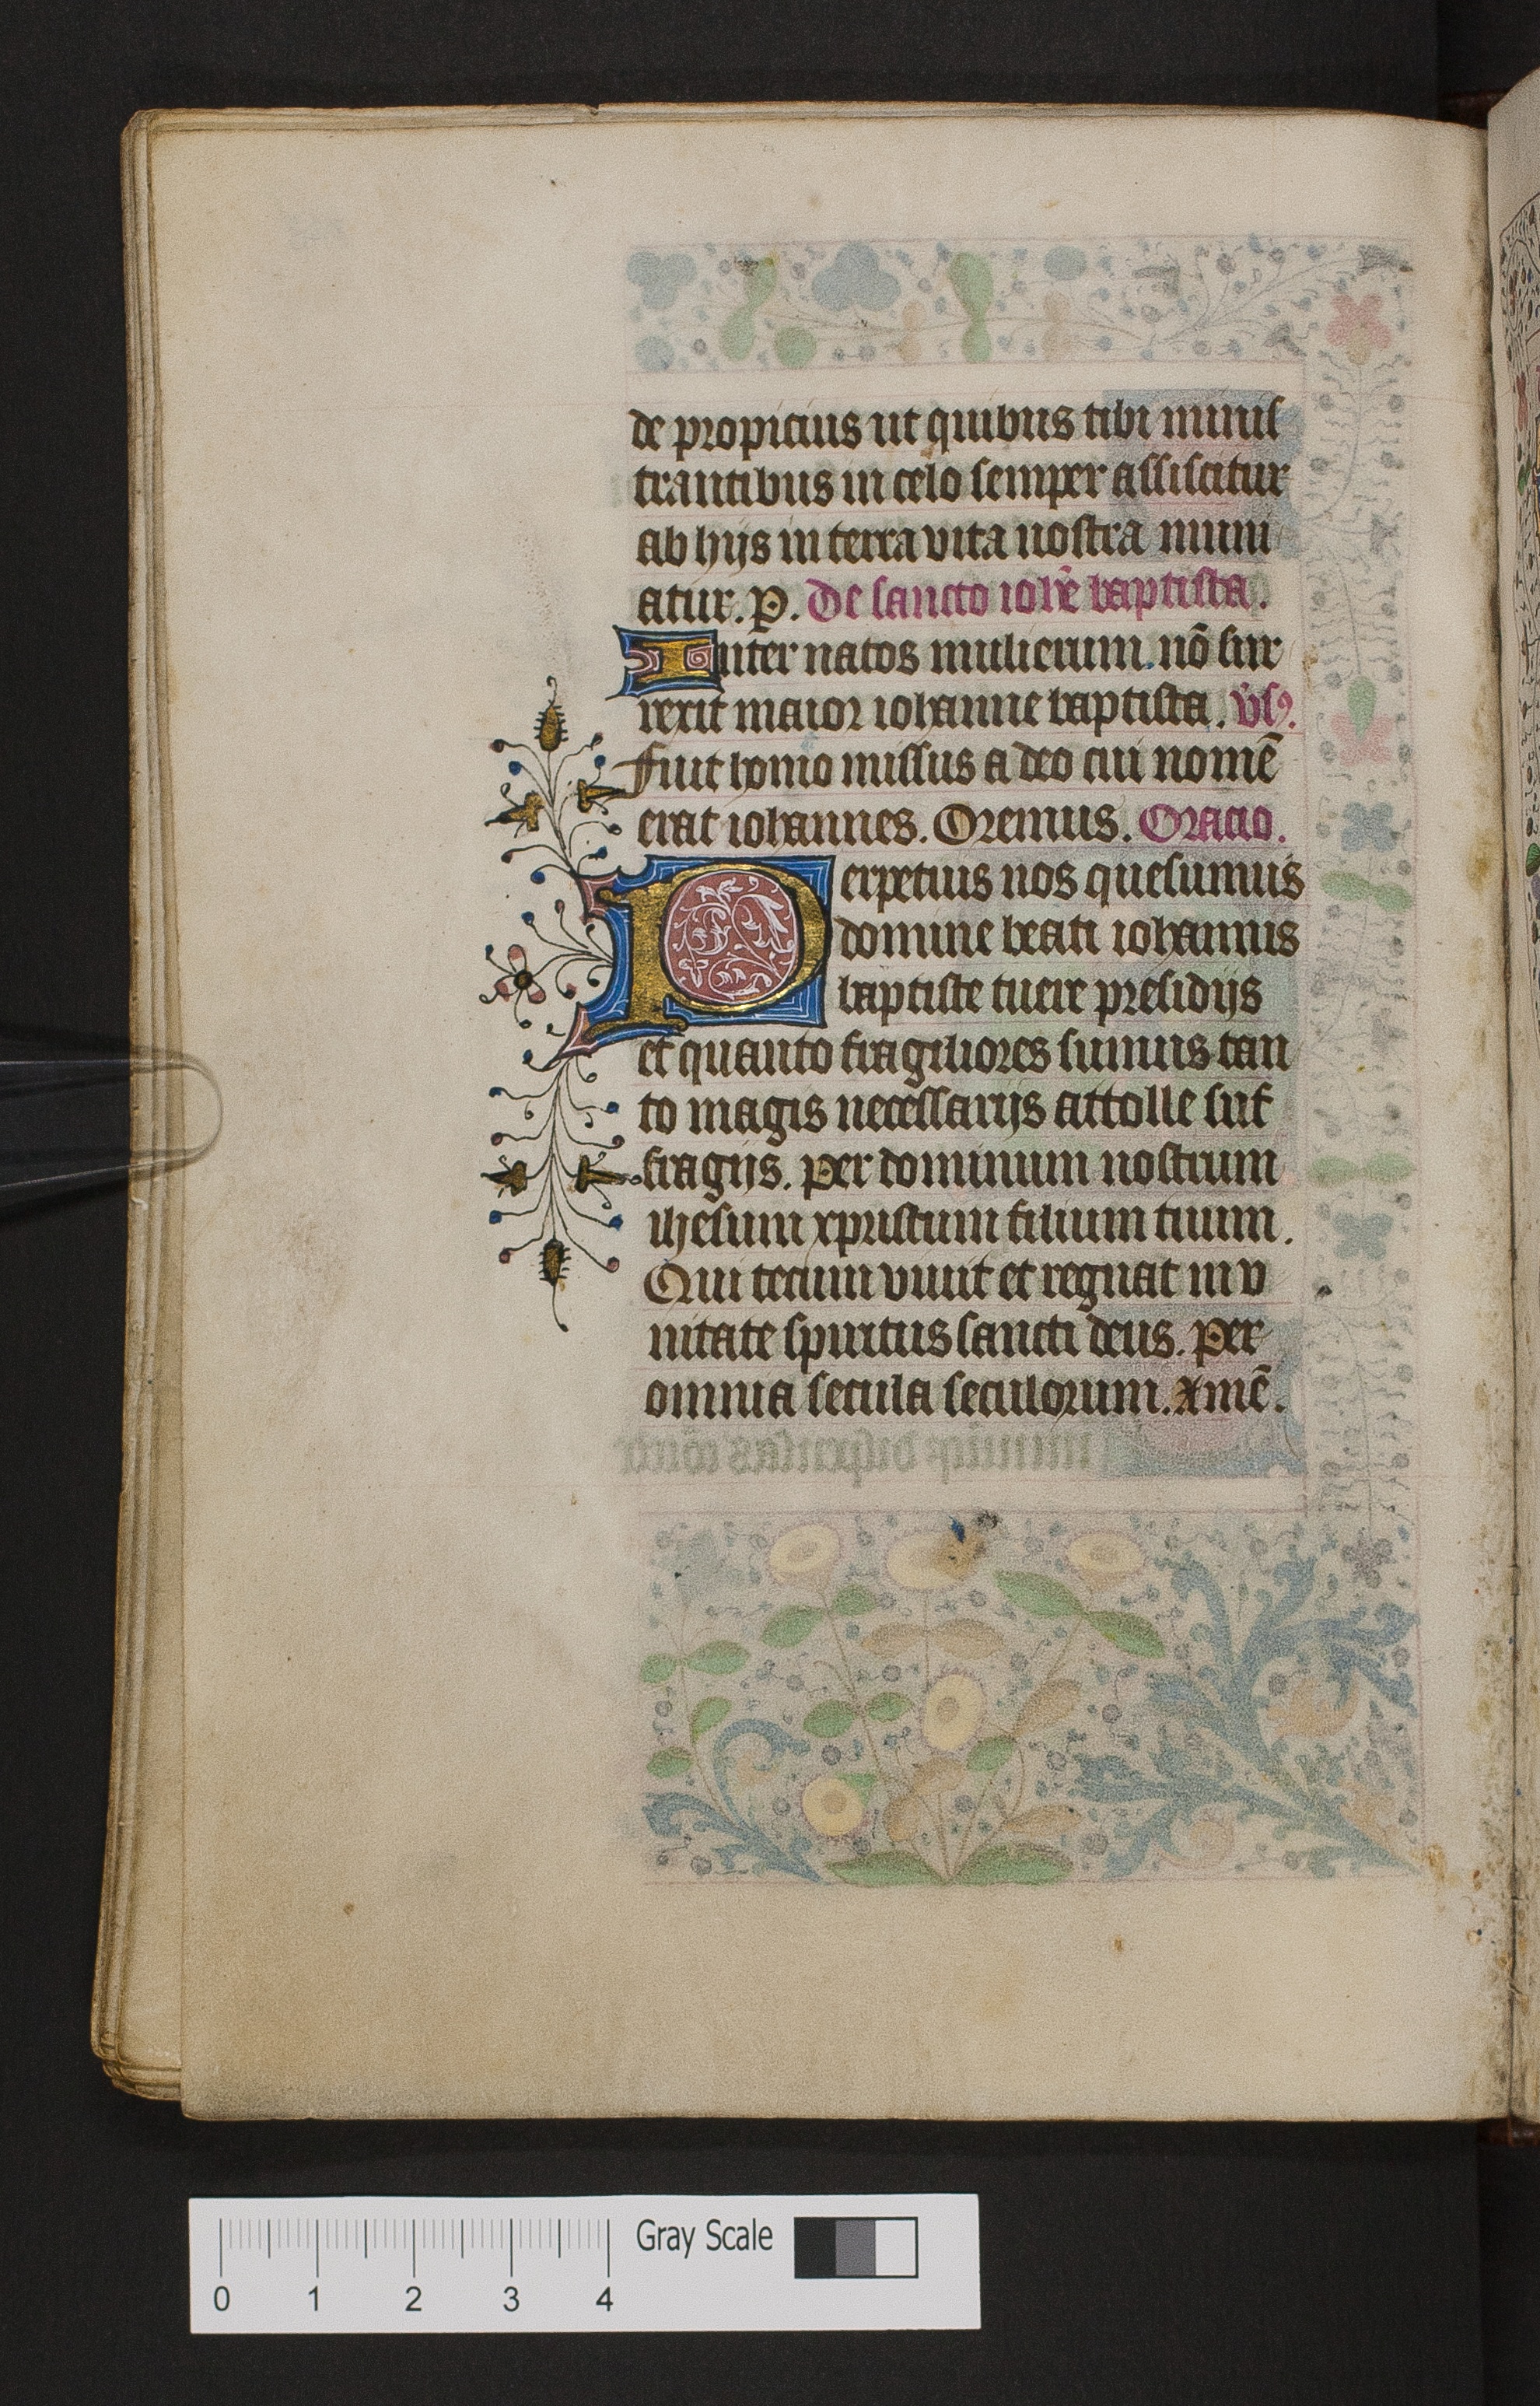 de propicius ut quibus tibi minis
trantibus in celo semper assiscitur
ab hijs in terra vita nostra muni
atur. P. De sancto ioh̄e baptista.
Inter natos mulierum nō sur
rexit maior iohanne baptista. v̉sꝰ.
Fuit homo missus a deo cui nomē
erat iohannes. Oremus. Oracio.
Perpetuis nos quesumus
domine beati iohannis
baptiste tuere presidijs
et quanto fragiliores sumus tan
to magis necessarijs attolle suf
fragijs. Per dominum nostrum
ihesum xpristum filium tuum.
Qui tecum viuit et regnat in v
nitate spiritus sancti deus. Per
omnia secula seculorum. Amē.
0 1 2 3 4 Gray Scale